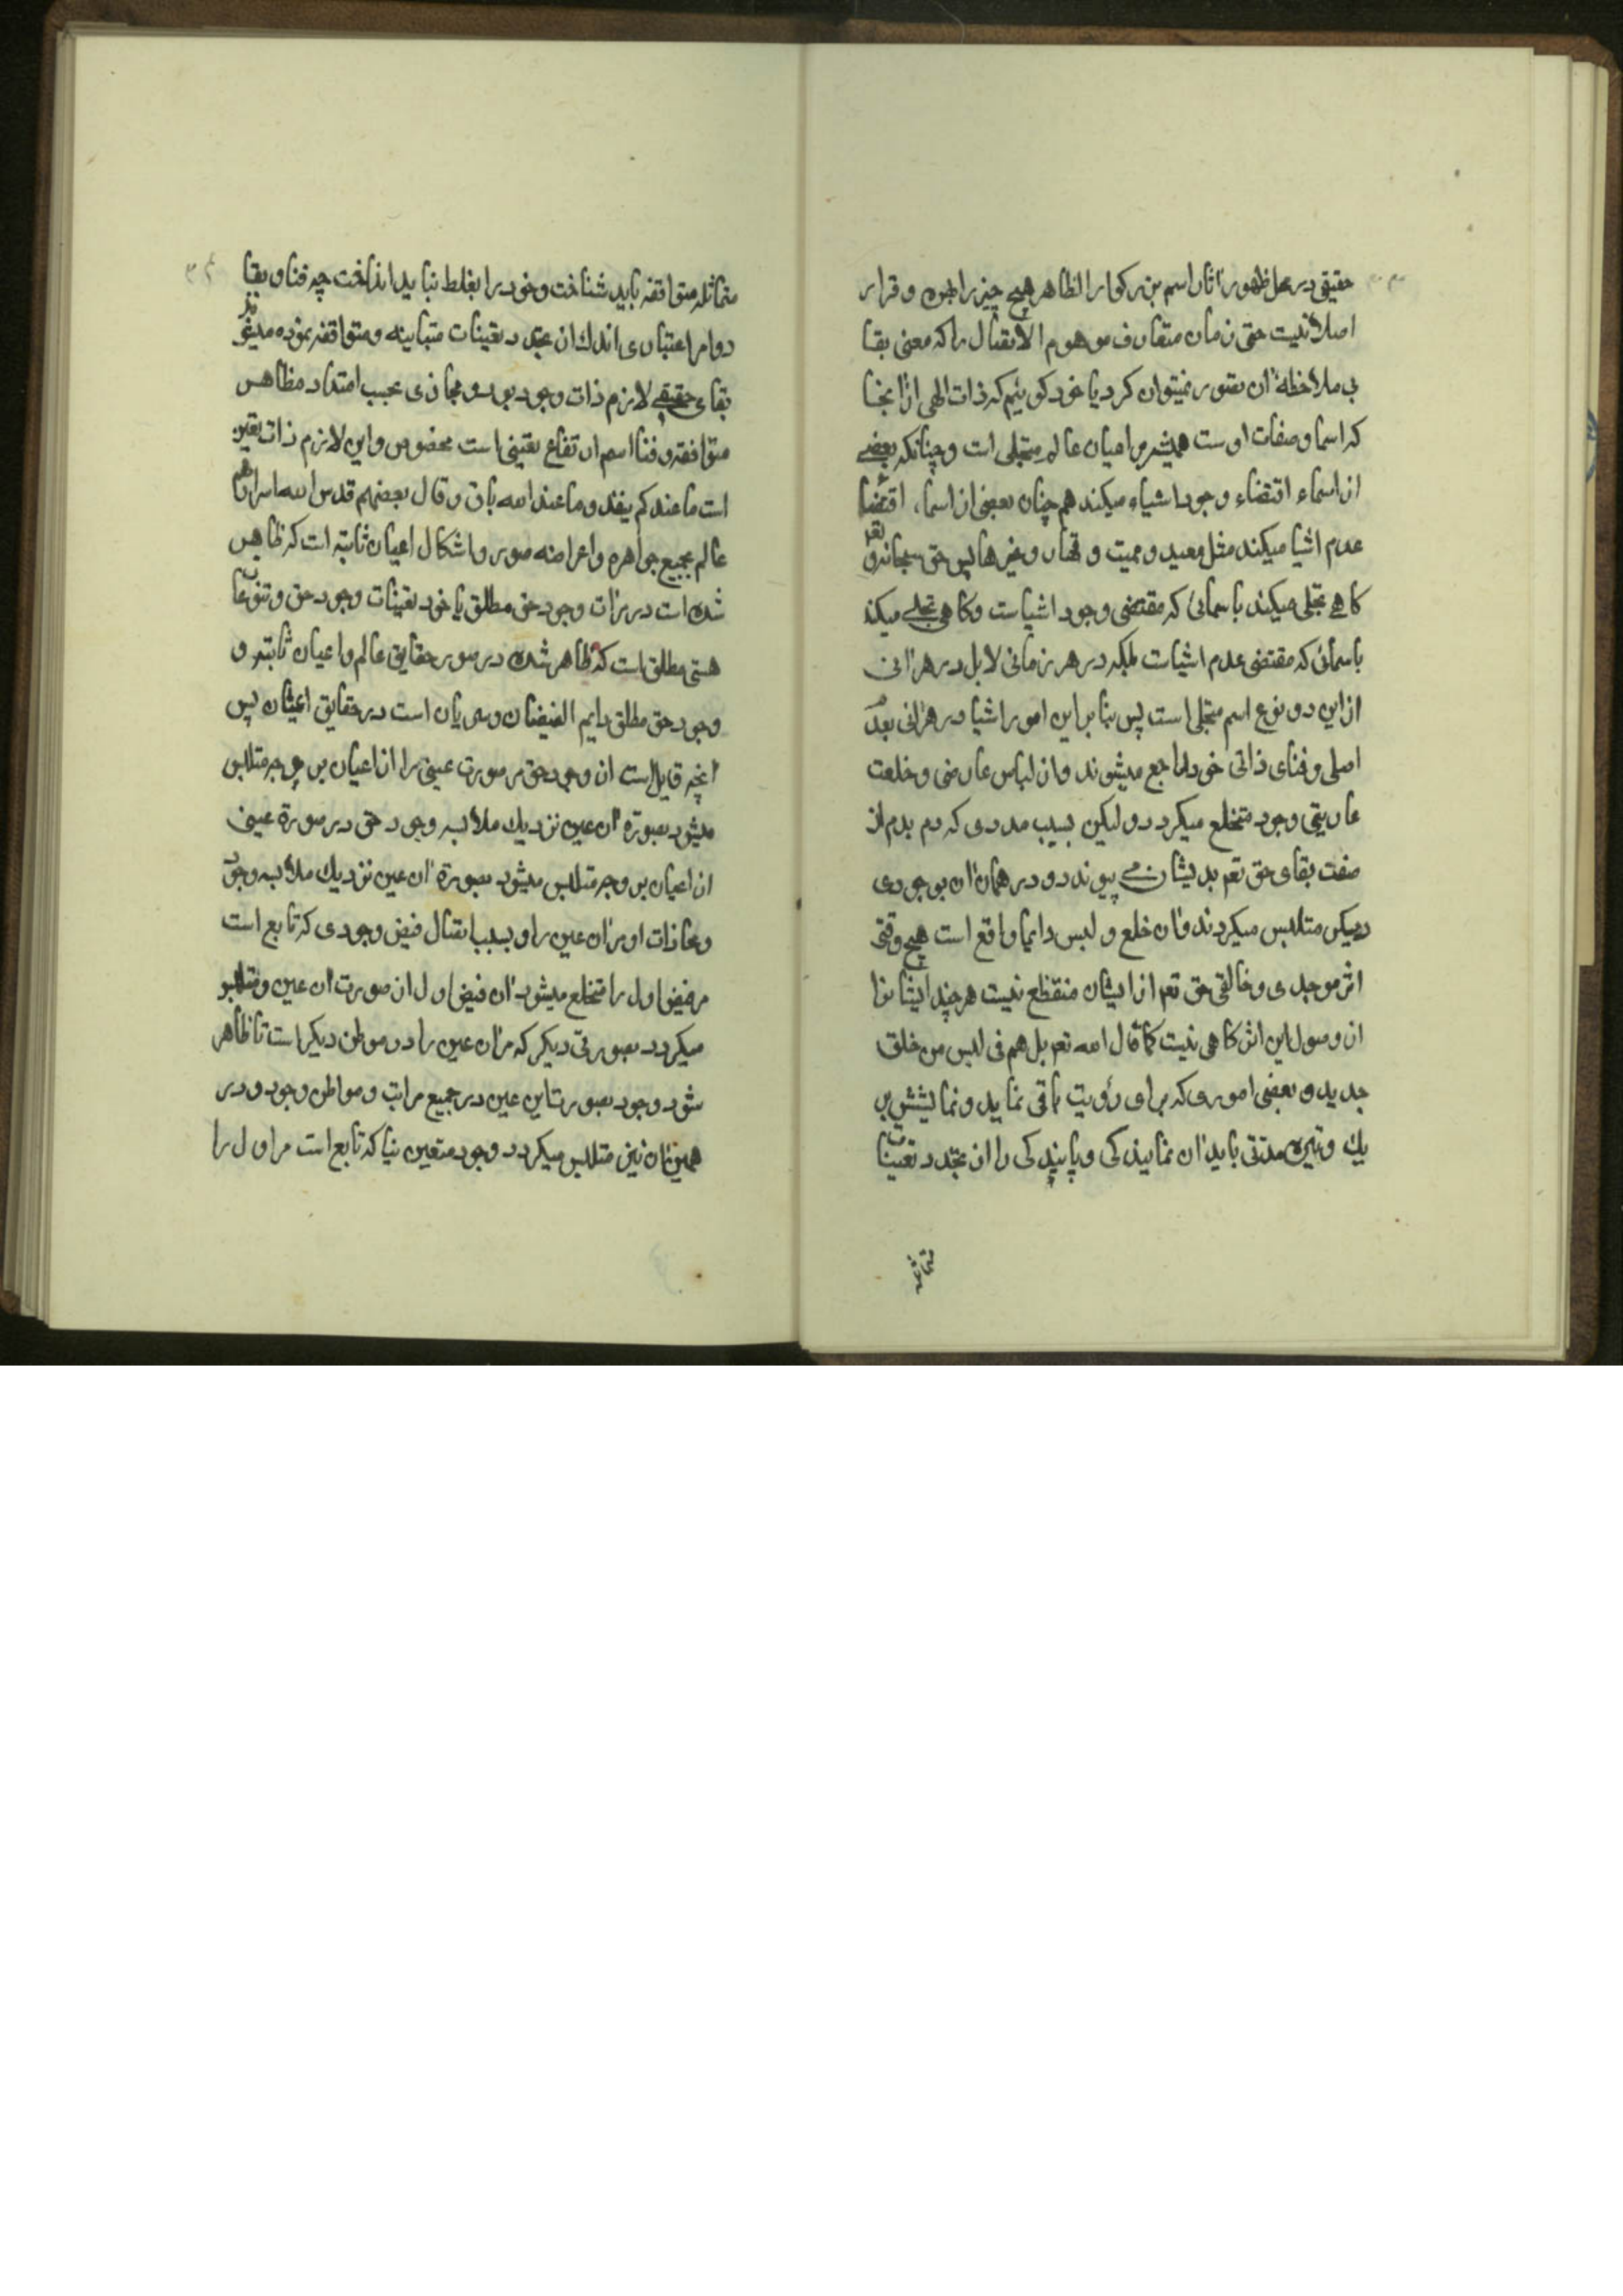 حقیقی در محل ظهور آثار اسم بزرکوار الظاهر هیچ چیز را بون و قرار
اصلا نیست حتی زمان متعارف موهوم الاتصال را که معنی بقا
بی ملاحظهٔ ان تصور نمیتوان کرد یا خود کوئیم که ذات الهی از انجا
که اسما و صفات اوست همیشه بر اعیان عالم متجلی است و چنانکه بعضے
از اسماء اقتضاء وجود اشیاء میکند هم چنان بعضی از اسماء اقتضا
عدم اشیا میکند مثل معید و ممیت و قهار و غیرها پس حق سبحانه و تعم
کاهے تجلی میکند باسمائی که مقتضی وجود اشیاست و کاهی تجلے میکند
باسمائی که مقتضی عدم اشیاست بلکه در هر زمانی لابل در هر آنی
ازین دو نوع اسم متجلی است پس بنا براین امور اشیا در هر آنی بعدم
اصلی و فنای ذاتی خود راجع میشوند و از لباس عارضی و خلعت
عاریتی وجود متخلع میکردد و لیکن بسبب مددی که دم بدم از
صفت بقای حق تعم بدیشان مے پیوندد و در همان آن بوجودی
دیکر متلبس میکردند و ان خلع و لبس دایما واقع است هیچ وقتی
اثر موجدی و خالقی حق تعم از ایشان منقطع نیست هر چند ایشانرا
از وصول این اثر کاهی نیست کما قال الله تعم بل هم فی لبس من خلق
جدید و بعضی اموری که برای رؤیت باقی نماید و نمایشش بر
یك وتیره مدتی باید ان نمایندکی و پایندکی را از تجدد تعینات
متماثله
متماثله متوافقه باید شناخت و خود را بغلط نباید انداخت چه فنا و بقا
دو امر اعتباری اند که از تجدد تعینات متباینه و متوافقه نموده میشود
بقای حقیقے لازم ذات وجود بود و مجازی بحسب امتداد مظاهر
متوافقه و فنا اسم ارتفاع تعینی است مخصوص و این لازم ذات تعین
است ما عندکم ینفد و ما عند الله باق و قال بعضهم قدس الله اسرارهم
عالم بجمیع جواهره و اعراضه صور و اشکال اعیان ثابته است که ظاهر
شده است در مرات وجود حق مطلق یا خود تعینات وجود حق و تنوعات
هستی مطلق است که ظاهر شده در صور حقایق عالم و اعیان ثابته و
وجود حق مطلق دایم الفیضان و سریان است در حقایق اعیان پس
انچه قابل است از وجود حق مر صورت عینی را از اعیان بر وجه متلبس
میشود بصورة ان عین نزدیك ملابسه وجود حق در صورة عینی
از اعیان بر وجه متلبس میشود بصورة ان عین نزدیك ملابسه وجود
و محاذات او مر ان عین را و بسبب اتصال فیض وجودی که تابع است
مر فیض اول را متخلع میشود ان فیض اول از صورت ان عین و متلبس
میکردد بصورتی دیکر که مر ان عین را در موطن دیکر است تا ظاهر
شود وجود بصورت این عین در جمیع مراتب و مواطن وجود و در
همین ان نیز متلبس میکردد وجود متعین نیا که تابع است مر اول را